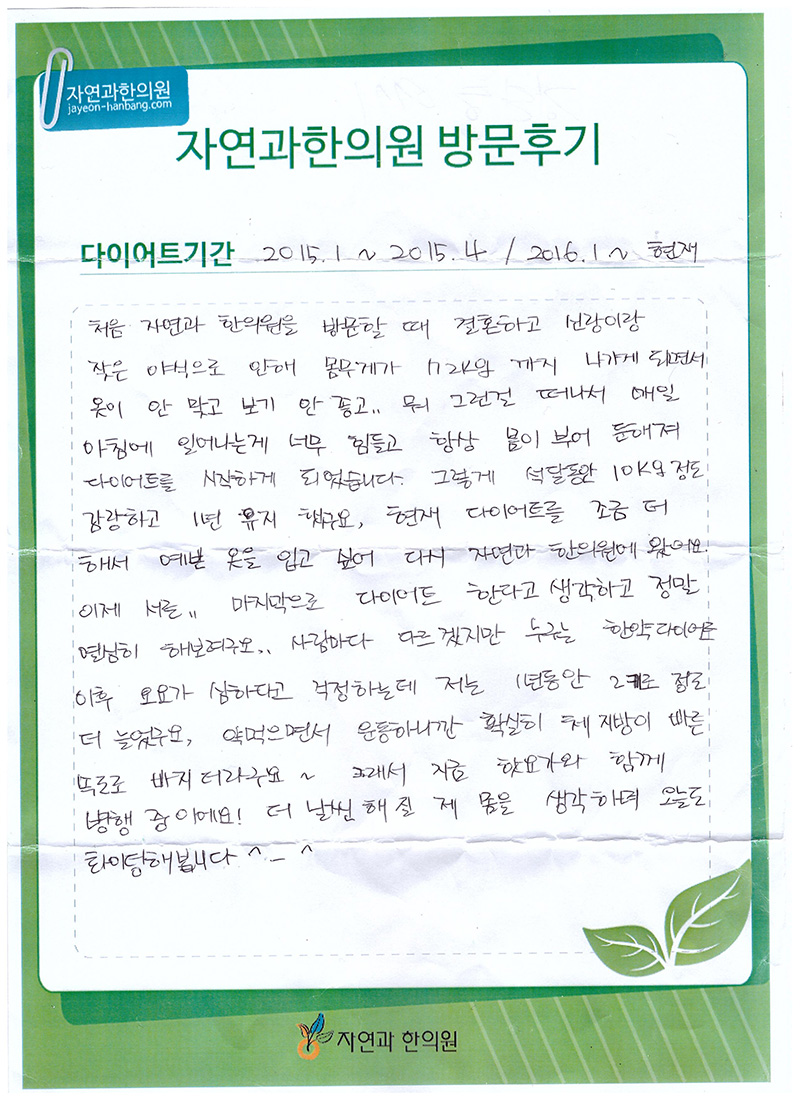 자연과한의원
jayeon-hanbang.com
자연과한의원 방문후기
다이어트기간 2015.1 ~ 2015.4 / 2016.1 ~ 현재
처음 자연과 한의원을 방문할 때 결혼하고 신랑이랑
잦은 야식으로 인해 몸무게가 72kg 까지 나가게 되면서
옷이 안 맞고 보기 안 좋고.. 뭐 그런걸 떠나서 매일
아침에 일어나는게 너무 힘들고 항상 몸이 부어 둔해져
다이어트를 시작하게 되었습니다. 그렇게 석달동안 10kg 정도
감량하고 1년 유지 했구요, 현재 다이어트를 조금 더
해서 예쁜 옷을 입고 싶어 다시 자연과 한의원에 왔어요.
이제 서른.. 마지막으로 다이어트 한다고 생각하고 정말
열심히 해보려구요.. 사람마다 다르겠지만 누구는 한약다이어트
이후 요요가 심하다고 걱정하는데 저는 1년동안 2키로 정도
더 늘었구요, 약먹으면서 운동하니깐 확실히 체지방이 빠른
속도로 빠지더라구요 ~ 그래서 지금 핫요가와 함께
병행 중이에요! 더 날씬해질 제 몸을 생각하며 오늘도
화이팅해봅니다 ^_^
자연과 한의원